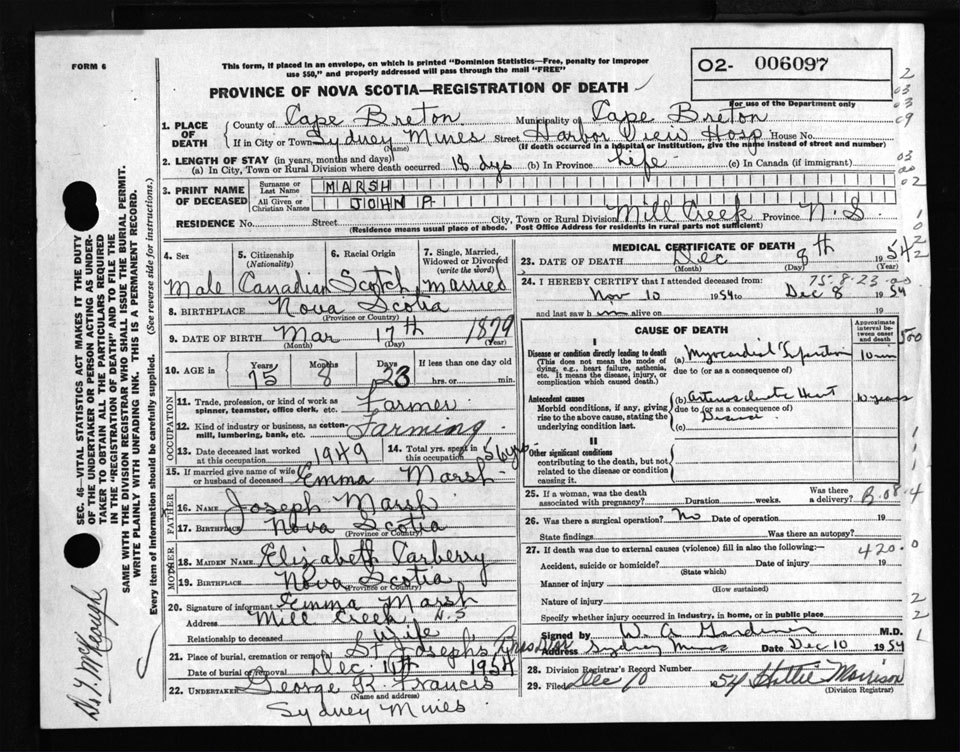 FORM 6
This form, if placed in an envelope, on which is printed "Dominion Statistics—Free, penalty for improper
use $50," and properly addressed will pass through the mail "FREE"
O2- 006097
For use of the Department only
PROVINCE OF NOVA SCOTIA—REGISTRATION OF DEATH
1. PLACE OF DEATH
County of Cape Breton Municipality of Cape Breton
If in City or Town Sydney Mines Street Harbor View Hosp House No.
(Name) (If death occurred in a hospital or institution, give the name instead of street and number)
2. LENGTH OF STAY (in years, months and days)
(a) In City, Town or Rural Division where death occurred 18 dys (b) In Province Life (c) In Canada (if immigrant)
3. PRINT NAME OF DECEASED
Surname or Last Name MARSH
All Given or Christian Names JOHN P.
RESIDENCE No. Street City, Town or Rural Division Mill Creek Province N.S.
(Residence means usual place of abode. Post Office Address for residents in rural parts not sufficient)
4. Sex
Male
5. Citizenship
(Nationality)
Canadian
6. Racial Origin
Scotch
7. Single, Married,
Widowed or Divorced
(write the word)
Married
8. BIRTHPLACE Nova Scotia
(Province or Country)
9. DATE OF BIRTH Mar 17th 1879
(Month) (Day) (Year)
10. AGE in Years Months Days If less than one day old
75 8 23 hrs. or min.
OCCUPATION
11. Trade, profession, or kind of work as
spinner, teamster, office clerk, etc. Farmer
12. Kind of industry or business, as cotton-
mill, lumbering, bank, etc. Farming
13. Date deceased last worked
at this occupation 1949
14. Total yrs. spent in
this occupation
15. If married give name of wife
or husband of deceased Emma Marsh
FATHER
16. NAME Joseph Marsh
17. BIRTHPLACE Nova Scotia
(Province or Country)
MOTHER
18. MAIDEN NAME Elizabeth Carberry
19. BIRTHPLACE Nova Scotia
(Province or Country)
20. Signature of informant Emma Marsh
Address Mill Creek N.S
Relationship to deceased Wife
21. Place of burial, cremation or removal St Josephs
Date of burial or removal Dec. 11th 1954
22. UNDERTAKER George R. Francis
(Name and address)
Sydney Mines
MEDICAL CERTIFICATE OF DEATH
23. DATE OF DEATH Dec 8th 1954
(Month) (Day) (Year)
75-8-23
24. I HEREBY CERTIFY that I attended deceased from:
Nov 10 1954 to Dec 8 1954
and last saw h m alive on 19
CAUSE OF DEATH
Approximate
interval be-
tween onset
and death
I
Disease or condition directly leading to death
(This does not mean the mode of
dying, e.g., heart failure, asthenia,
etc. It means the disease, injury, or
complication which caused death.)
(a) Myocardial Infarction 10 min
due to (or as a consequence of)
Antecedent causes
Morbid conditions, if any, giving
rise to the above cause, stating the
underlying condition last.
(b) Arteriosclerotic Heart 10 years
due to (or as a consequence of)
Disease
(c)
II
Other significant conditions
contributing to the death, but not
related to the disease or condition
causing it.
25. If a woman, was the death
associated with pregnancy? Duration weeks. Was there
a delivery?
26. Was there a surgical operation? No Date of operation 19
State findings Was there an autopsy?
27. If death was due to external causes (violence) fill in also the following:— 420.0
Accident, suicide or homicide? Date of injury 19
(State which)
Manner of injury
(How sustained)
Nature of injury
Specify whether injury occurred in industry, in home, or in public place
Signed by W. G. Gardiner M.D.
Address Sydney Mines Date Dec 10 1954
28. Division Registrar's Record Number
29. Filed Dec 10 1954 Hattie Morrison
(Division Registrar)
SEC. 46—VITAL STATISTICS ACT MAKES IT THE DUTY
OF THE UNDERTAKER OR PERSON ACTING AS UNDER-
TAKER TO OBTAIN ALL THE PARTICULARS REQUIRED
IN THE "REGISTRATION OF DEATH" AND TO FILE THE
SAME WITH THE DIVISION REGISTRAR WHO SHALL ISSUE THE BURIAL PERMIT.
WRITE PLAINLY WITH UNFADING INK. THIS IS A PERMANENT RECORD.
Every item of information should be carefully supplied. (See reverse side for instructions.)